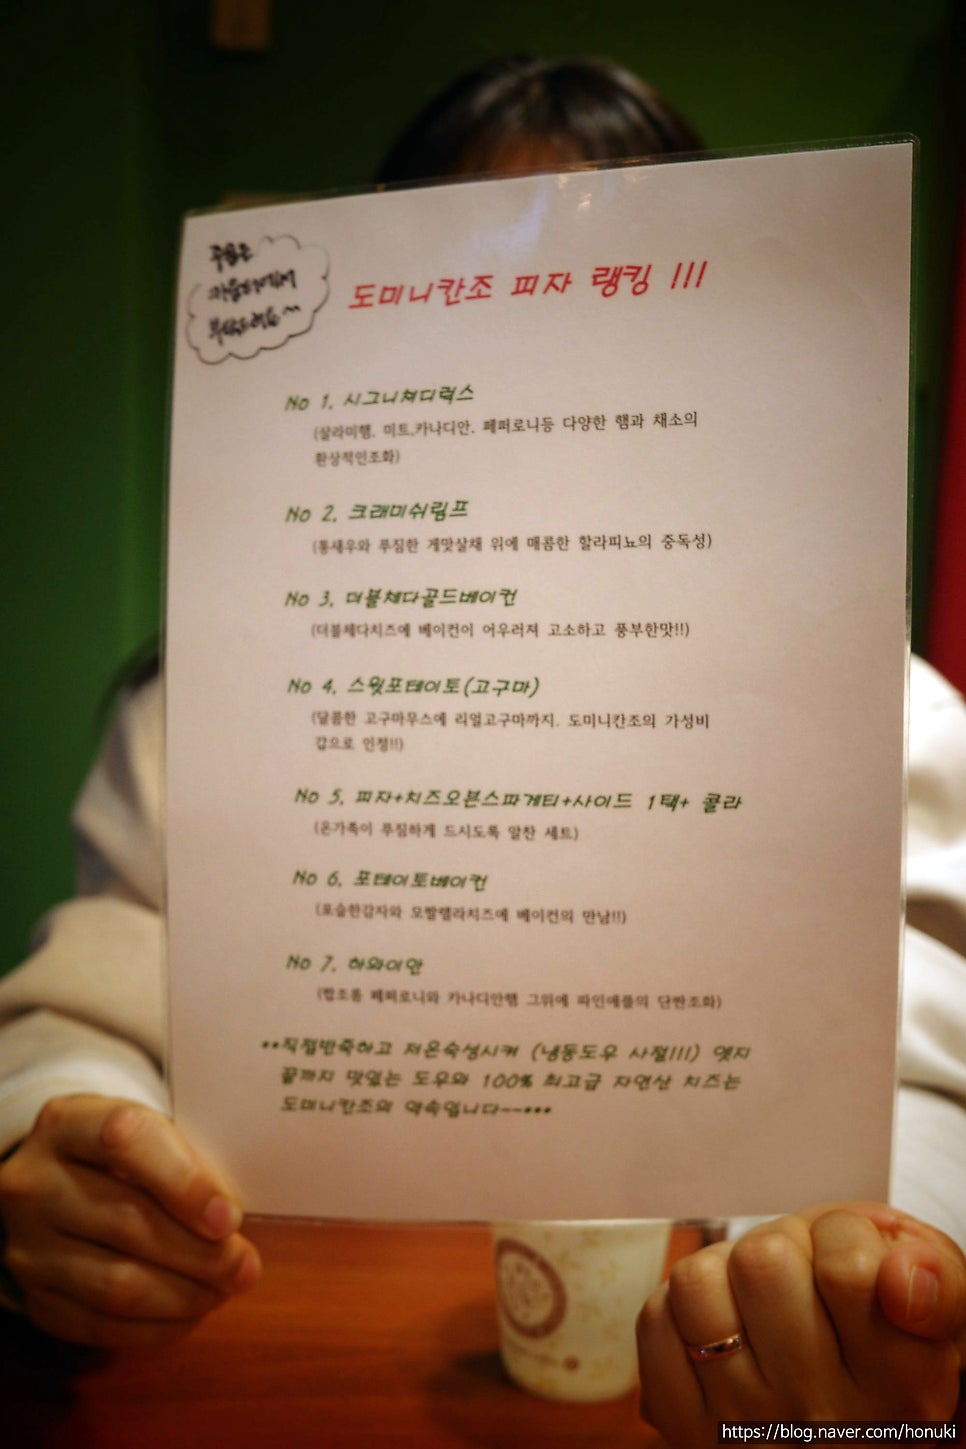 주문은
카운터에서
부탁드려요~
도미니칸조 피자 랭킹 !!!
No 1. 시그니쳐디럭스
(살라미햄, 미트,카나디안, 페퍼로니등 다양한 햄과 채소의
환상적인조화)
No 2. 크래미쉬림프
(통새우와 푸짐한 게맛살채 위에 매콤한 할라피뇨의 중독성)
No 3. 더블체다골드베이컨
(더블체다치즈에 베이컨이 어우러져 고소하고 풍부한맛!!)
No 4. 스윗포테이토(고구마)
(달콤한 고구마무스에 리얼고구마까지. 도미니칸조의 가성비
갑으로 인정!!)
No 5. 피자+치즈오븐스파게티+사이드 1택+ 콜라
(온가족이 푸짐하게 드시도록 알찬 세트)
No 6. 포테이토베이컨
(포슬한감자와 모짤렐라치즈에 베이컨의 만남!!)
No 7. 하와이안
(짭조롬 페퍼로니와 카나디안햄 그위에 파인애플의 단짠조화)
**직접반죽하고 저온숙성시켜 (냉동도우 사절!!!) 엣지
끝까지 맛있는 도우와 100% 최고급 자연산 치즈는
도미니칸조의 약속입니다~~***
https://blog.naver.com/honuki